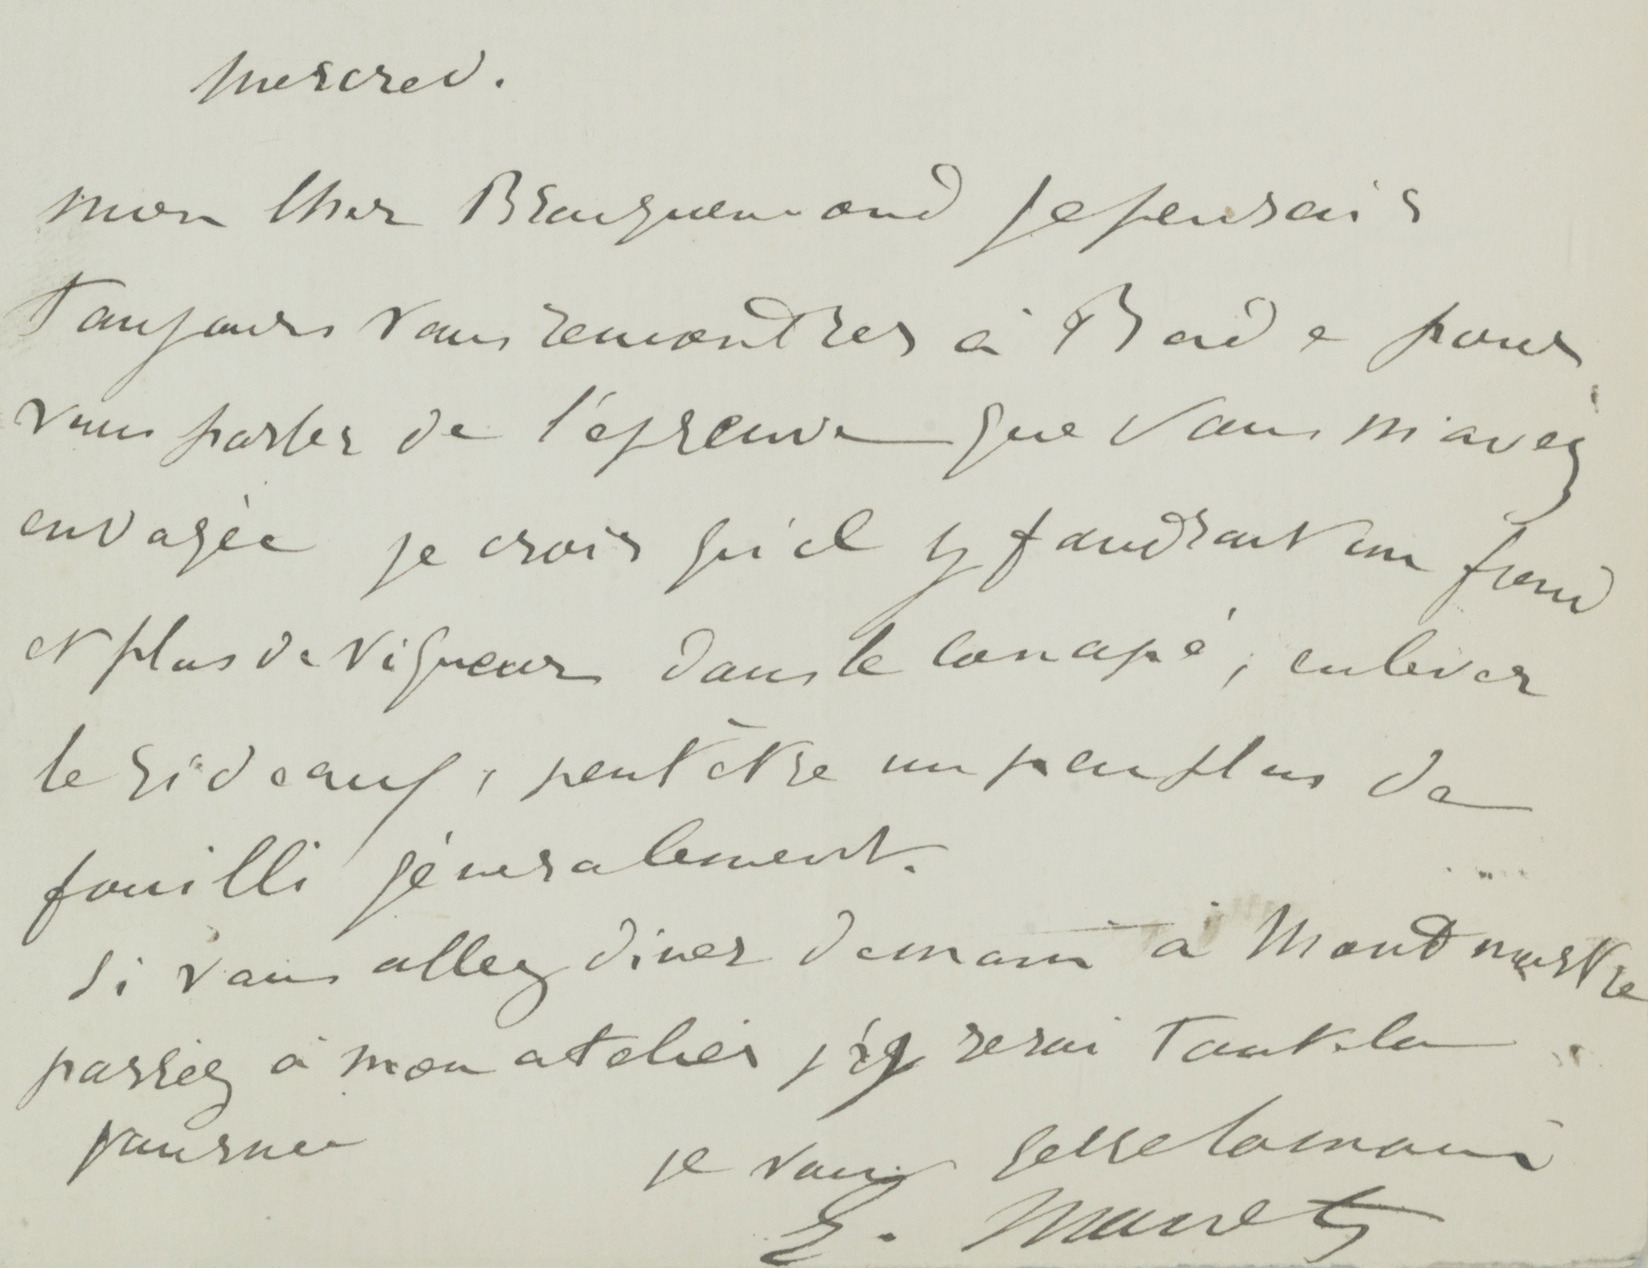 mercred.
mon cher Bracquemond je pensais
toujours vous rencontrer à Bade pour
vous parler de l'épreuve que vous m'avez
envoyée je crois qu'il y faudrait un fond
et plus de vigueur dans le canapé, enlever
le rideau, peut être un peu plus de
fouilli généralement.
si vous allez diner demain à Montmartre
passez à mon atelier j'y serai toute la
journée
je vous serre la main
E. Manet